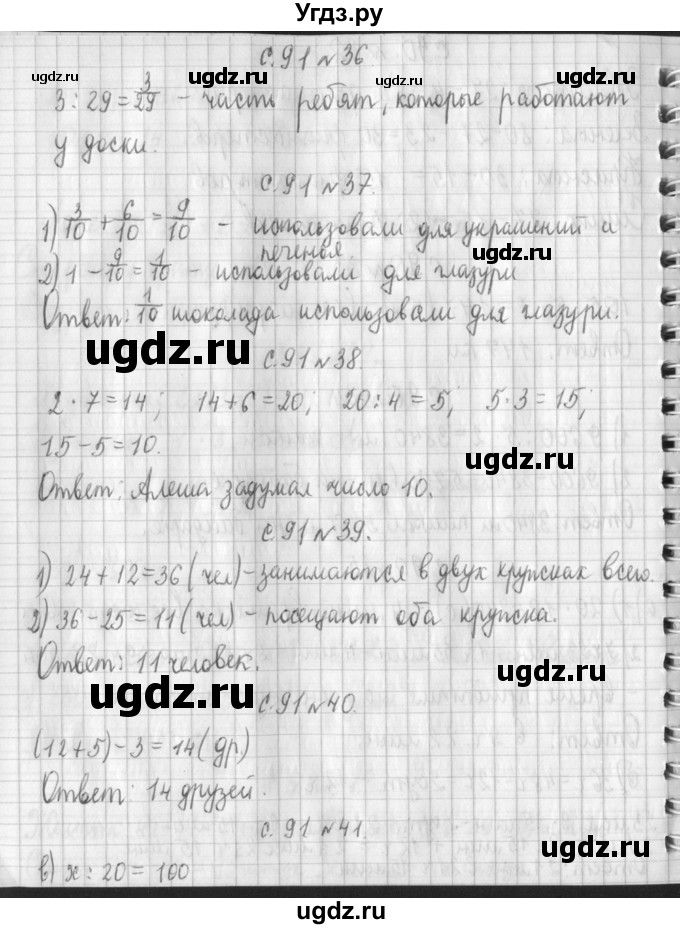 Угдз.ру
с.91 №36
3 : 29 = 3/29 - часть ребят, которые работают
у доски.
с.91 №37.
1) 3/10 + 6/10 = 9/10 - использовали для украшений и
печенья.
2) 1 - 9/10 = 1/10 - использовали для глазури
Ответ: 1/10 шоколада использовали для глазури.
с.91 №38.
2 · 7 = 14; 14 + 6 = 20; 20 : 4 = 5; 5 · 3 = 15;
15 - 5 = 10.
Ответ: Алеша задумал число 10.
с.91 №39.
1) 24 + 12 = 36 (чел) - занимаются в двух кружках всего.
2) 36 - 25 = 11 (чел) - посещают оба кружка.
Ответ: 11 человек.
с.91 №40.
(12 + 5) - 3 = 14 (др)
Ответ: 14 друзей.
с.91 №41.
в) x : 20 = 100
ugdz.ru
ugdz.ru
ugdz.ru
ugdz.ru
ugdz.ru
ugdz.ru
ugdz.ru
ugdz.ru
ugdz.ru
ugdz.ru
ugdz.ru
ugdz.ru
ugdz.ru